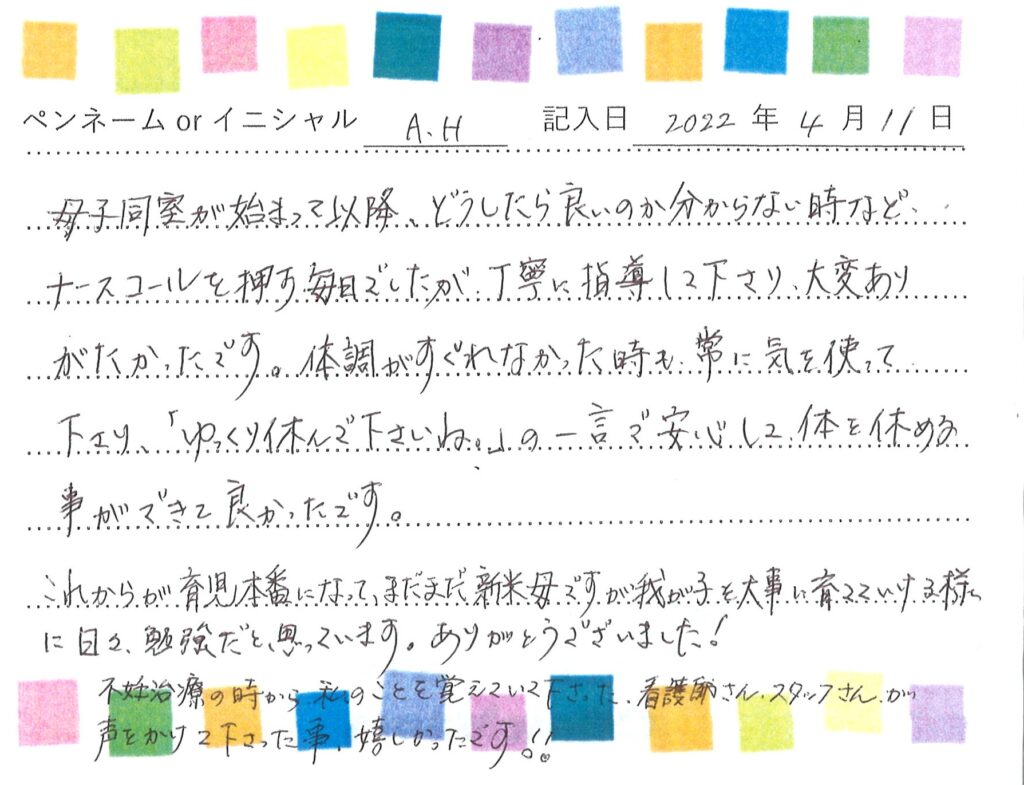 ペンネーム or イニシャル A.H 記入日 2022 年 4 月 11 日
母子同室が始まって以降、どうしたら良いのか分からない時など、
ナースコールを押す毎日でしたが、丁寧に指導して下さり、大変あり
がたかったです。体調がすぐれなかった時も、常に気を使って
下さり、「ゆっくり休んで下さいね。」の一言で安心して、体を休める
事ができて良かったです。
これからが育児本番になって、まだまだ新米母ですが我が子を大事に育てていける様
に日々、勉強だと思っています。ありがとうございました!
不妊治療の時から、私のことを覚えていて下さった、看護師さん、スタッフさん、が
声をかけて下さった事、嬉しかったです!!